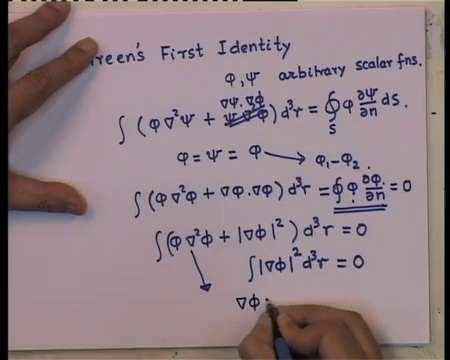 reen's First Identity
φ, ψ arbitrary scalar fns.
∇ψ.∇φ
∫ (φ∇²ψ + ) d³r = ∮_S φ ∂ψ/∂n ds.
φ = ψ = φ → φ₁-φ₂.
∫ (φ∇²φ + ∇φ.∇φ) d³r = ∮ φ ∂φ/∂n = 0
∫(φ∇²φ + |∇φ|²) d³r = 0
∫|∇φ|² d³r = 0
∇φ